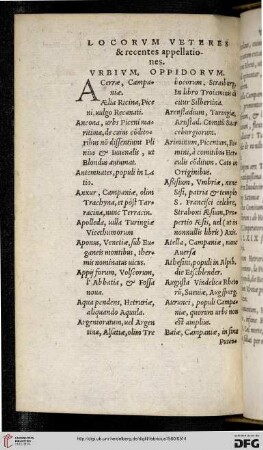 LOCORVM VETERES
& recentes appellatio-
nes.
VRBIVM, OPPIDORVM.
ACerræ, Campa-
niæ.
Ælia Ricina, Pice
ni, uulgo Recanati.
Ancona, urbs Piceni ma-
ritima, de cuius cōdito-
ribus nō dissentiunt Pli
nius & Iuuenalis, ut
Blondus autumat.
Antemnates, populi in La
tio.
Anxur, Campaniæ, olim
Trachyna, et pōst Tar-
racina, nunc Terracin.
Apolleda, uilla Turingiæ
Vicechumorum
Aponus, Venetiæ, sub Eu
ganeis montibus, ther-
mis nominatus uicus.
Appij forum, Volscorum,
l' Abbatia, & Fossa
noua.
Aqua pendens, Hetruriæ,
aliquando Aquila.
Argentoratum, uel Argen
tina, Alsatiæ, olim Tre
bocorum, Strasburg,
In libro
citur Silbertina.
Arnstadium, Turingiæ,
Arnstad. Comitū Suart
ceburgiorum.
Ariminum, Picentum, Fla
minij, à comitibus Her
culis cōditum. Cato in
Originibus.
Assisium, Vmbriæ, nunc
Sisi, patria & templo
S. Francisci celebre,
Straboni Æsium, Pro-
pertio Asis, uel (ut in
nonnullis libris) Axis.
Atella, Campaniæ, nunc
Auersa
Athesini, populi in Alpib.
die Etschlender.
Augusta Vindelica Rheto
rū, Sueuiæ, Augspurg.
Aurunci, populi Campa-
niæ, quorum urbs non
est amplius.
Baiæ, Campaniæ, in sinu
Puteo-
http://digi.ub.uni-heidelberg.de/diglit/
UNIVERSITÄTS-
BIBLIOTHEK
HEIDELBERG
Gefördert durch
DFG